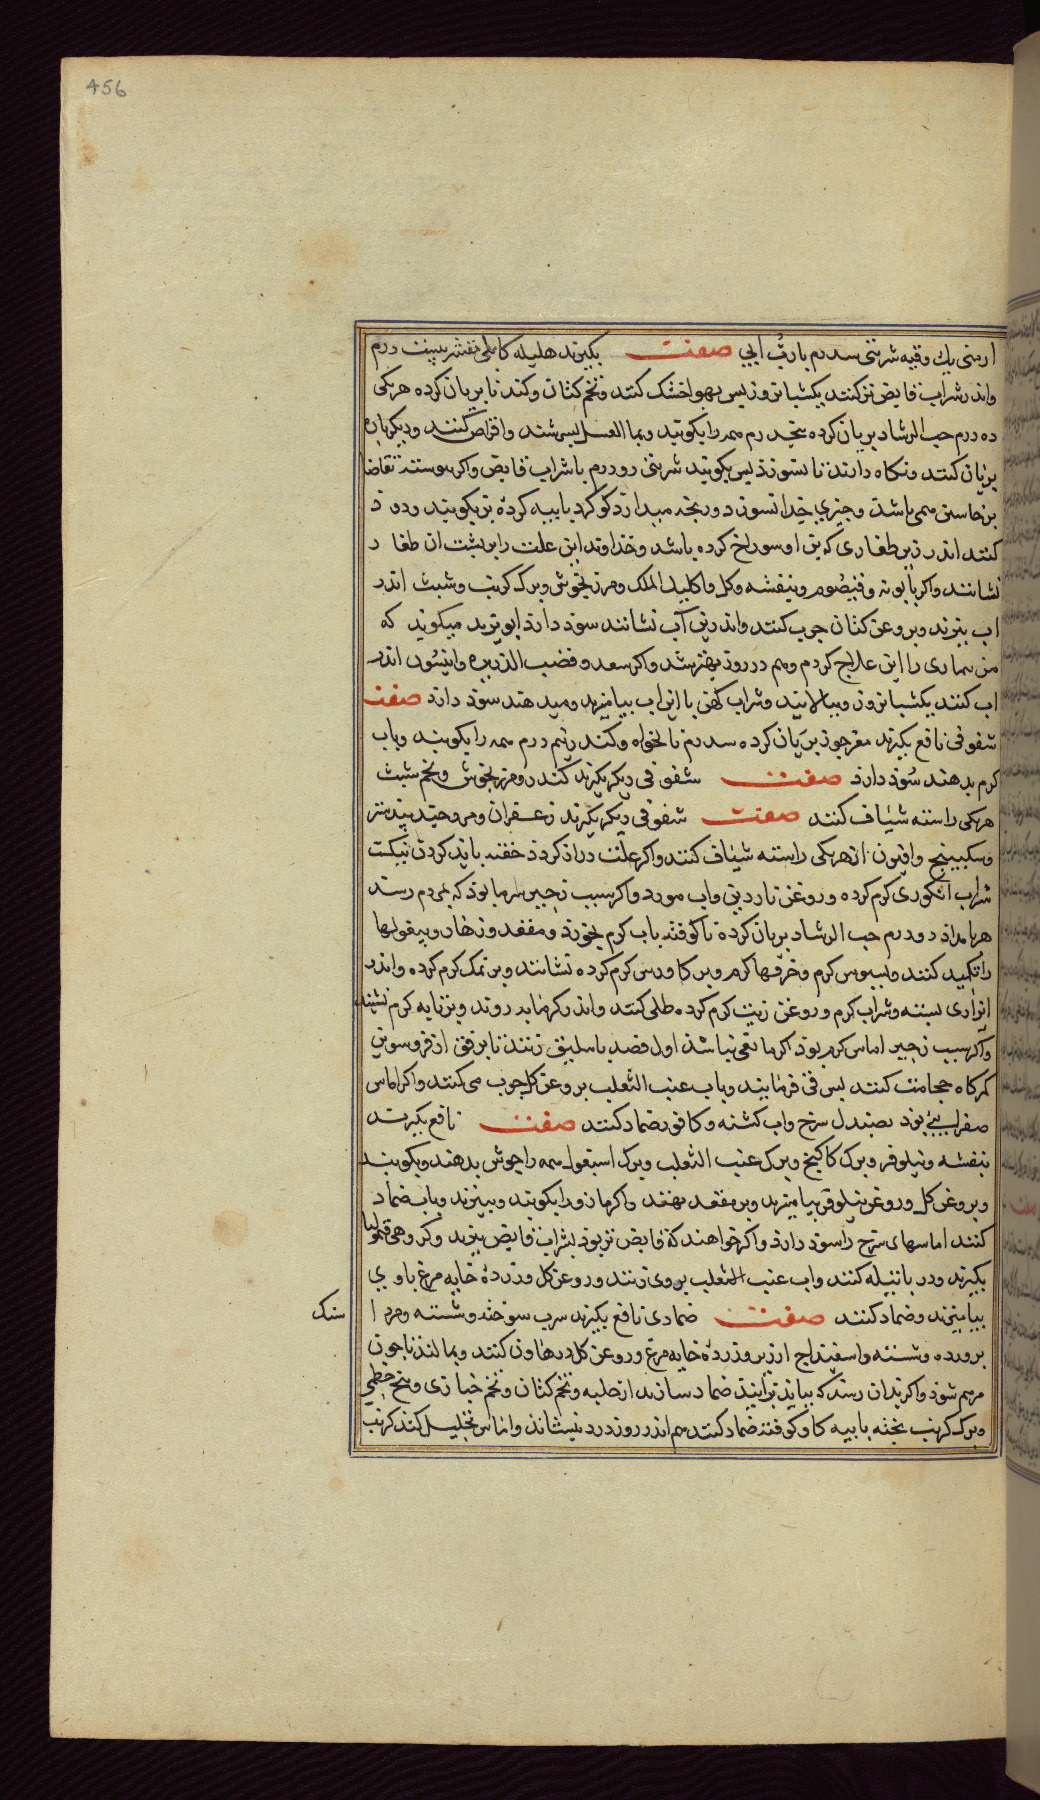 456
ارمنی یك وقیه شربتی سدرم با ربّ ابی صفت بکیرند هلیله کابلی مقشر بیست درم
واندر شراب قابض تر کنند یکشبانروز پس بهوا خشک کنند وتخم کتان وکندنا بریان کرده هریکی
ده درم حب الرشاد بریان کرده درم همه را بکوبند وبماء العسل بسرشند واقراص کنند ودیکرباره
بریان کنند ونکاه دارند تا نسوزد پس بکوبند شربتی دو درم با شراب قابض واکر پیوسته تقاضا
برخاستن همی باشد وچیزی جدا نشود کوکرد با پیه کرده بز بکوبند ودود
کنند اندر زیر طغاری که بن او سوراخ کرده باشد وخداوند این علت را بر پشت ان طغار
نشانند واکر بابونه وقیصوم وبنفشه وکل واکلیل الملک ومرزنجوش وبرک کرنب وشبث اندر
اب بپزند وبروغن کتان چرب کنند واندرین آب نشانند سوذ دارد ابو یزید میکوید که
من بیماری را این علاج کردم وهم در روز بهتر شد واکر سعد وقصب الذریره وانیسون اندر
اب کنند یکشبانروز وبپالایند وشراب کهن با این اب بیامیزند ومیدهند سوذ دارد صفت
سفوفی نافع بکیرند مغز جوز بریان کرده سدرم نانخواه وکندر نیم درم همه را بکوبند وباب
کرم بدهند سُوذ دارد صفت سفوفی دیکر بکیرند کندر ومرزنجوش وتخم شبث
هریکی راسته شیاف کنند صفت شفوفی دیکر بکیرند زعفران ومر وجندبیدستر
وسکبینج وافیون از هریکی راسته شیاف کنند واکر علت دراز کردد حقنه باید کردن نیکست
شراب انکوری کرم کرده وروغن ناردین واب مورد واکر سبب زحیر سرما بوذ که بمردم رسد
هر بامداد دو درم حب الرشاد بریان کرده ناکوفته باب کرم بخورد ومقعد وزهار وبیغولها
را تکمید کنند وبسبوس کرم وخرقها کرم وبر کاورس کرم کرده نشانند وبر نمک کرم کرده واندر
وشراب کرم وروغن زیت کرم کرده طلی کنند واندر کرمابه روند وبرتابه کرم نشیند
وآکر سبب زحیر اماس کرم بوذ اکر مانعی نباشد اول فصد باسلیق زنند تابرفق از فروسوتین
کمرکاه حجامت کنند پس قی فرمایند وباب عنب الثعلب بروغن کل چرب می کنند واکر اماس
صفرایی بود بصندل سرخ واب کشنه وکافور ضماد کنند صفت نافع بکیرند
بنفشه ونیلوفر وبرک کاکنج وبرک عنب الثعلب وبرک اسبغول همه را جوش بدهند وبکوبند
وبروغن کل وروغن نیلوفر بیامیزند وبر مقعد نهند واکر مازو را بکوبند وببیزند وباب ضماد
کنند اماسهای سرخ را سوذ دارد واکر خواهند که قابض تر بوذ بشراب قابض بپزند وکروهی قیمولیا
بکیرند ودر پاتیله کنند واب عنب الثعلب بروی زنند وروغن کل وزرده خایه مرغ باوی
بیامیزند وضماد کنند صفت ضمادی نافع بکیرند سرب سوخته وشسته ومردا
سنک
پرورده وشسته واسفیداج ارزیر وزرده خایه مرغ وروغن کل در هاون کنند وبمالند تا چون
مرهم شوذ واکر بدان رسد که بباید پزانیدن ضماد سازند از حلبه وتخم کتان وتخم خبازی وبیخ خطمی
وبرک کرنب پخته با پیه کاو کوفته ضماد کنند هم اندر روز درد بنشاند واماس تحلیل کند کرنب